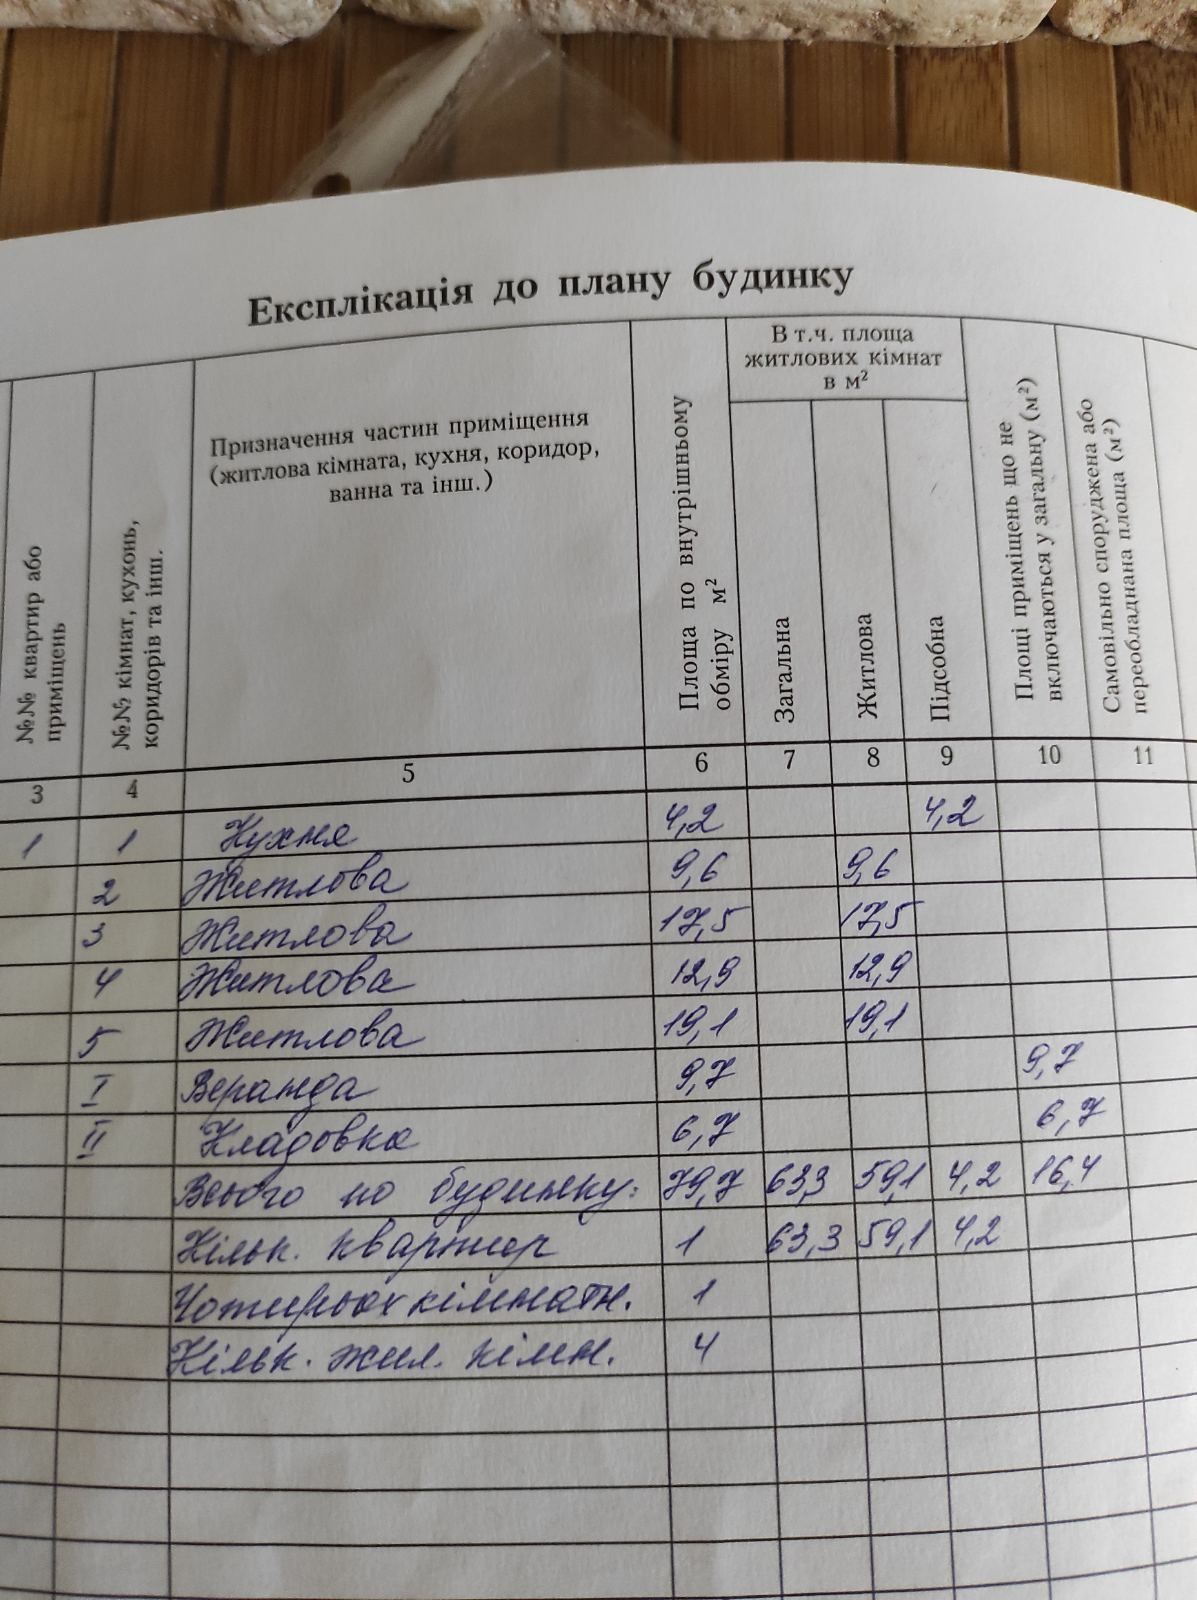 Експлікація до плану будинку
№№ квартир або приміщень
№№ кімнат, кухонь, коридорів та інш.
Призначення частин приміщення
(житлова кімната, кухня, коридор,
ванна та інш.)
Площа по внутрішньому обміру м²
В т.ч. площа
житлових кімнат
в м²
Загальна
Житлова
Підсобна
Площі приміщень що не включаються у загальну (м²)
Самовільно споруджена або переобладнана площа (м²)
3 4 5 6 7 8 9 10 11
1 1 Кухня 4,2 4,2
2 Житлова 9,6 9,6
3 Житлова 17,5 17,5
4 Житлова 12,9 12,9
5 Житлова 19,1 19,1
I Веранда 9,7 9,7
II Кладовка 6,7 6,7
Всього по будинку: 79,7 63,3 59,1 4,2 16,4
Кільк. квартир 1 63,3 59,1 4,2
Чотирьох кімнатн. 1
Кільк. жил. кімн. 4